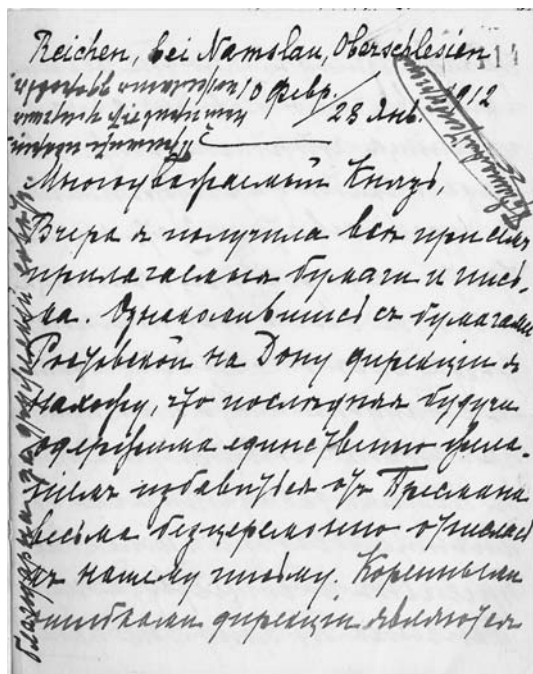 Reichen, bei Namslau, Oberschlesien
10 Февр. / 28 Янв. 1912
Многоуважаемый Князь,
Вчера я получила вся при семъ
прилагаемыя бумаги и пись-
ма. Ознакомившись съ бумагами
Ростовской на Дону дирекціи я
нахожу, что послѣдняя будучи
одержима единственно жела-
ніемъ избавиться отъ Пресмана
весьма безцеремонно отнеслась
къ нашему письму. Коренными
ошибками дирекціи являются
благодарна за